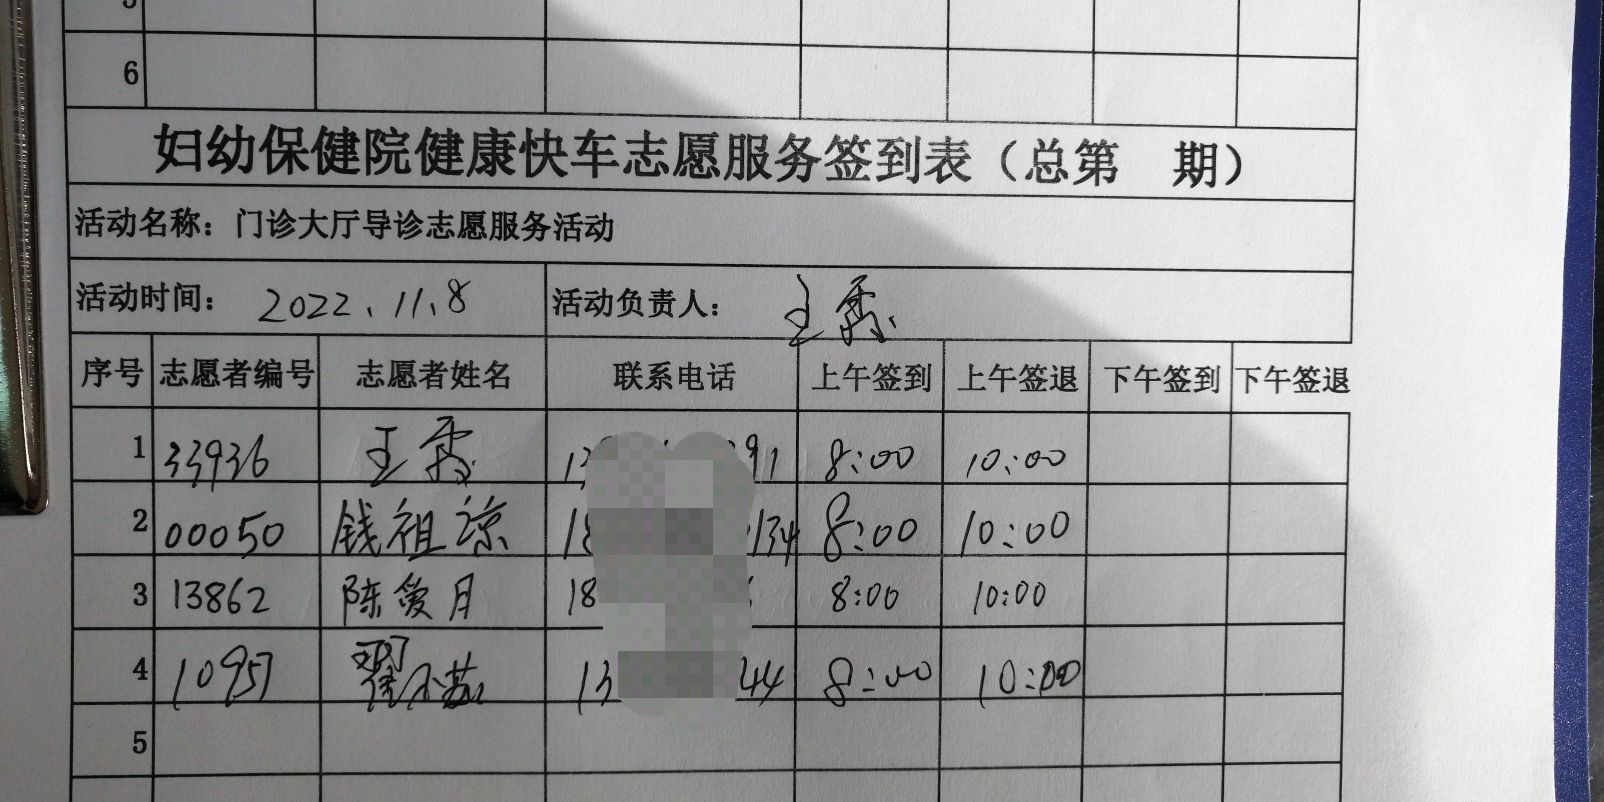 6
妇幼保健院健康快车志愿服务签到表（总第 期）
活动名称：门诊大厅导诊志愿服务活动
活动时间： 2022.11.8 活动负责人： 王
序号 志愿者编号 志愿者姓名 联系电话 上午签到 上午签退 下午签到 下午签退
1 33936 王 13 91 8:00 10:00
2 00050 钱祖谅 18 134 8:00 10:00
3 13862 陈爱月 18 8:00 10:00
4 10957 翟小荔 13 44 8:00 10:00
5